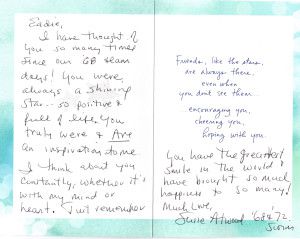 Eadie,
I have thought of
you so many times
since our GB team
days! You were
always a shining
star-- so positive &
full of life. You
truly were & Are
an inspiration to me
I think about you
constantly, whether it's
with my mind or
heart. Just remember
Friends, like the stars,
are always there,
even when
you don't see them...
encouraging you,
cheering you,
hoping with you.
You have the greatest
smile in the world &
have brought so much
happiness to so many!
Much Love,
'68 & '72